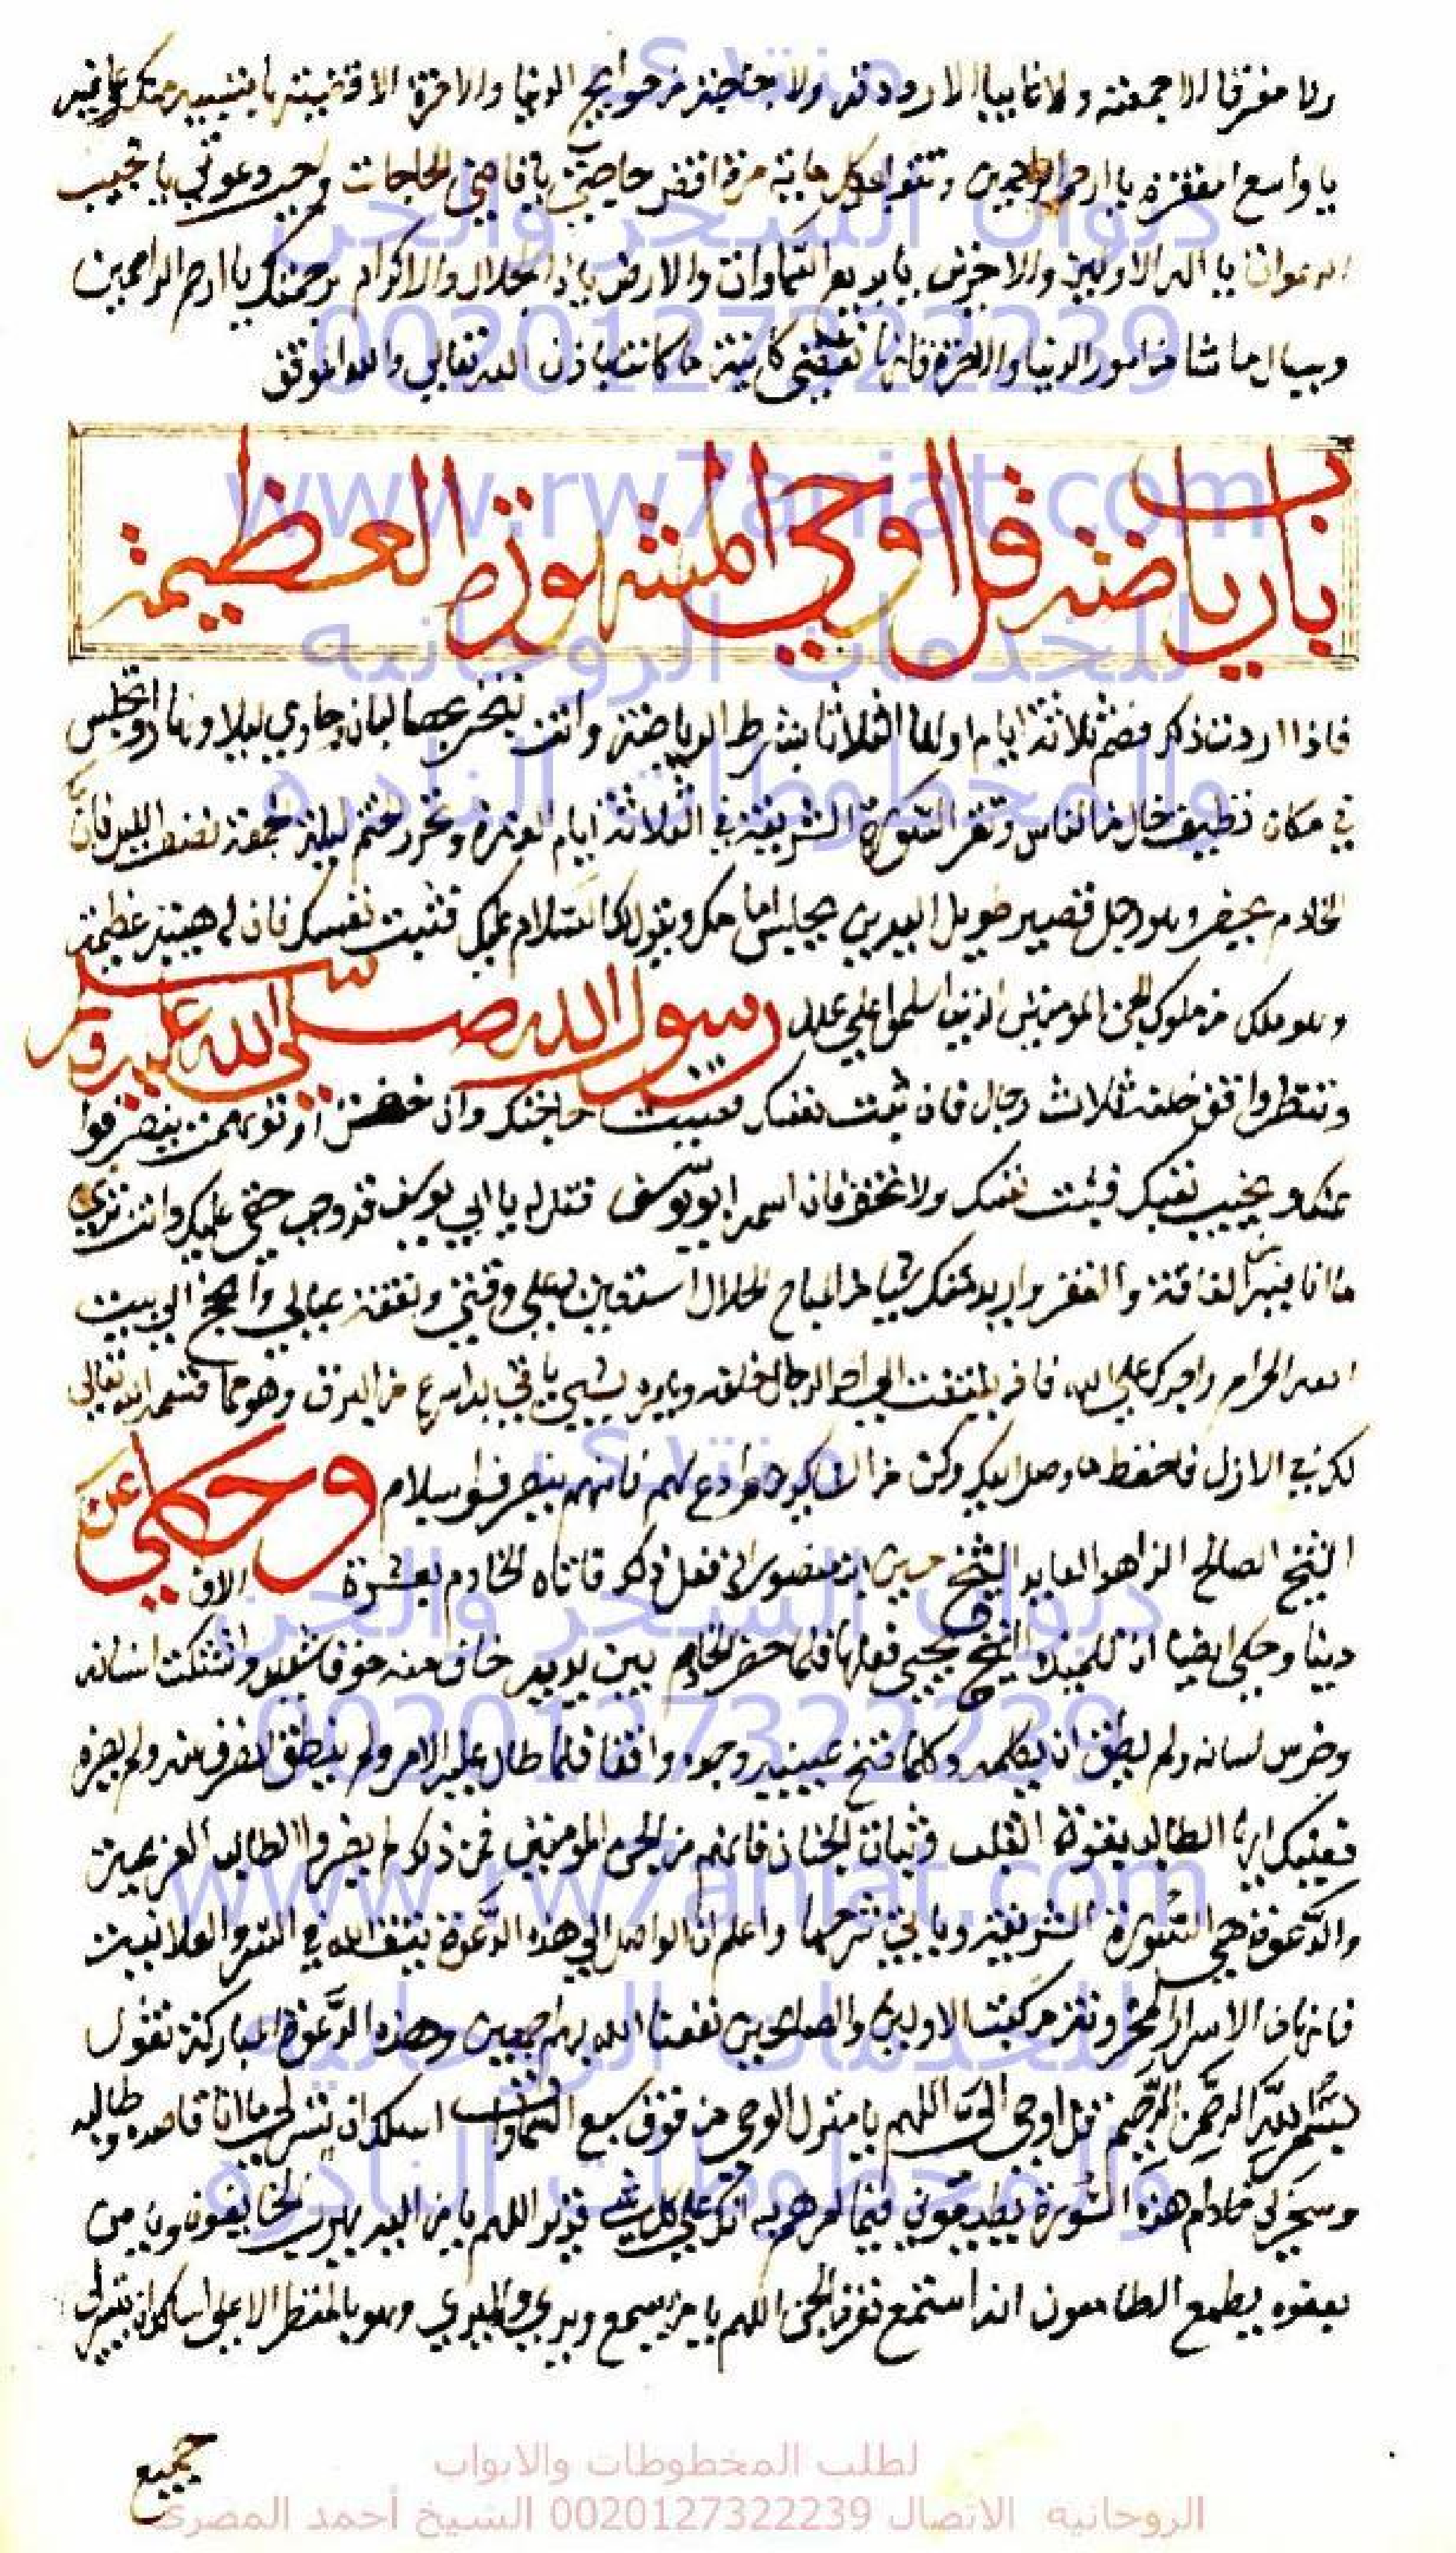 ولا مفرقا الا جمعته ولا غايبا الا رددته ولا حاجة من حوايج الدنيا والاخرة الا قضيتها بتيسير منك وعافية
يا واسع المغفرة يا ارحم الراحمين وتقول كل مرة اقض حاجتي يا قاضي الحاجات واجب دعوتي يا مجيب
الدعوات يا اله الاولين والاخرين يا بديع السماوات والارض يا ذا الجلال والاكرام برحمتك يا ارحم الراحمين
ويسال ما شا من امور الدنيا والاخرة فانها تقضى كاينة ما كانت باذن الله تعالي والله الموفق
باب رياضة قل اوحي المشهورة العظيمة
فاذا اردت ذكر فصم ثلاثة ايام اولها الثلاثا بشرط الرياضة وانت تبخر بحصا لبان جاوي ليلا ونهارا وتجلس
في مكان نظيف خال من الناس وتقرا السورة الشريفة في الثلاثة ايام الف مرة وتحرر الختم ليلة الجمعة نصف الليل فان
الخادم يحضر وهو رجل قصير طويل اليدين يجلس امامك ويقول لك السلام عليك فثبت نفسك فان له هيبة عظيمة
وهو ملك من ملوك الجن المومنين الذين اسلموا علي يد رسول الله صلى الله عليه وسلم
وتنظر واقف خلفه ثلاث رجال فان ثبت نفسك قضيت حاجتك وان خفت او توهمت ينصرفوا
عنك ويخيب تعبك فثبت نفسك ولا تخف فان اسمه ابو يوسف فقل له يا ابي يوسف قد وجب حقي عليك وانت تري
ما انا فيه من الفاقة والفقر واريد منك شيا من المباح الحلال استعين به علي وقتي ونفقة عيالي والحج الي بيت
الله الحرام واجرك علي الله فانه يلتفت الي احد الرجال خلفه ويامره بشي ياتي به اسرع من البرق وهو مما قسمه الله تعالى
لك في الازل فاحفظ ما وصل اليك وكن من الشاكرين وادع لهم فانهم ينصرفوا بسلام وحكي عن
الشيخ الصالح الزاهد العابد الشيخ حسين ابن منصور انه فعل ذلك فاتاه الخادم بعشرة الاف
دينار وحكي ايضا ان تلميذه الشيخ يحيي فعلها فلما حضر الخادم بين يديه خاف منه خوفا شديدا
وخرس لسانه ولم يطق ان يكلمه وكلما فتح عينيه وجده واقفا فلما طال عليه الامر ولم ينطق انصرف عنه ولم يضره
فعليك ايها الطالب بقوة القلب وثبات الجنان فانهم من الجن المومنين فمن ذلك لم يضروا الطالب العزيمة
والدعوة هي السورة الشريفة وياتي شرحها واعلم ان الواصل الي هذه الدعوة يتق الله في السر والعلانية
فانها من الاسرار المخزونة من كتب الاولين والصالحين نفعنا الله بهم اجمعين وهذه الدعوة المباركة تقول
بسم الله الرحمن الرحيم قل اوحي الي اللهم يا منزل الوحي من فوق سبع السماوات اسلك ان تيسر لي ما انا قاصده وطالبه
وسخر لي خادم هذه السورة يطيعوني فيما امرهم به انك علي كل شي قدير اللهم يا من اليه يهرب الخايفون ويا من
بعفوه يطمع الطامعون انه استمع نفر من الجن اللهم يا من يسمع ويري ولا يري وهو بالمنظر الاعلى اسالك ان تيسر لي
جميع
منتدى
ديوان السحر والجن
00201273222239
www.rw7aniat.com
للخدمات الروحانيه
والمخطوطات النادره
منتدى
ديوان السحر والجن
0020127322239
www.rw7aniat.com
للخدمات الروحانيه
والمخطوطات النادره
لطلب المخطوطات والابواب
الروحانيه الاتصال 0020127322239 الشيخ أحمد المصرى